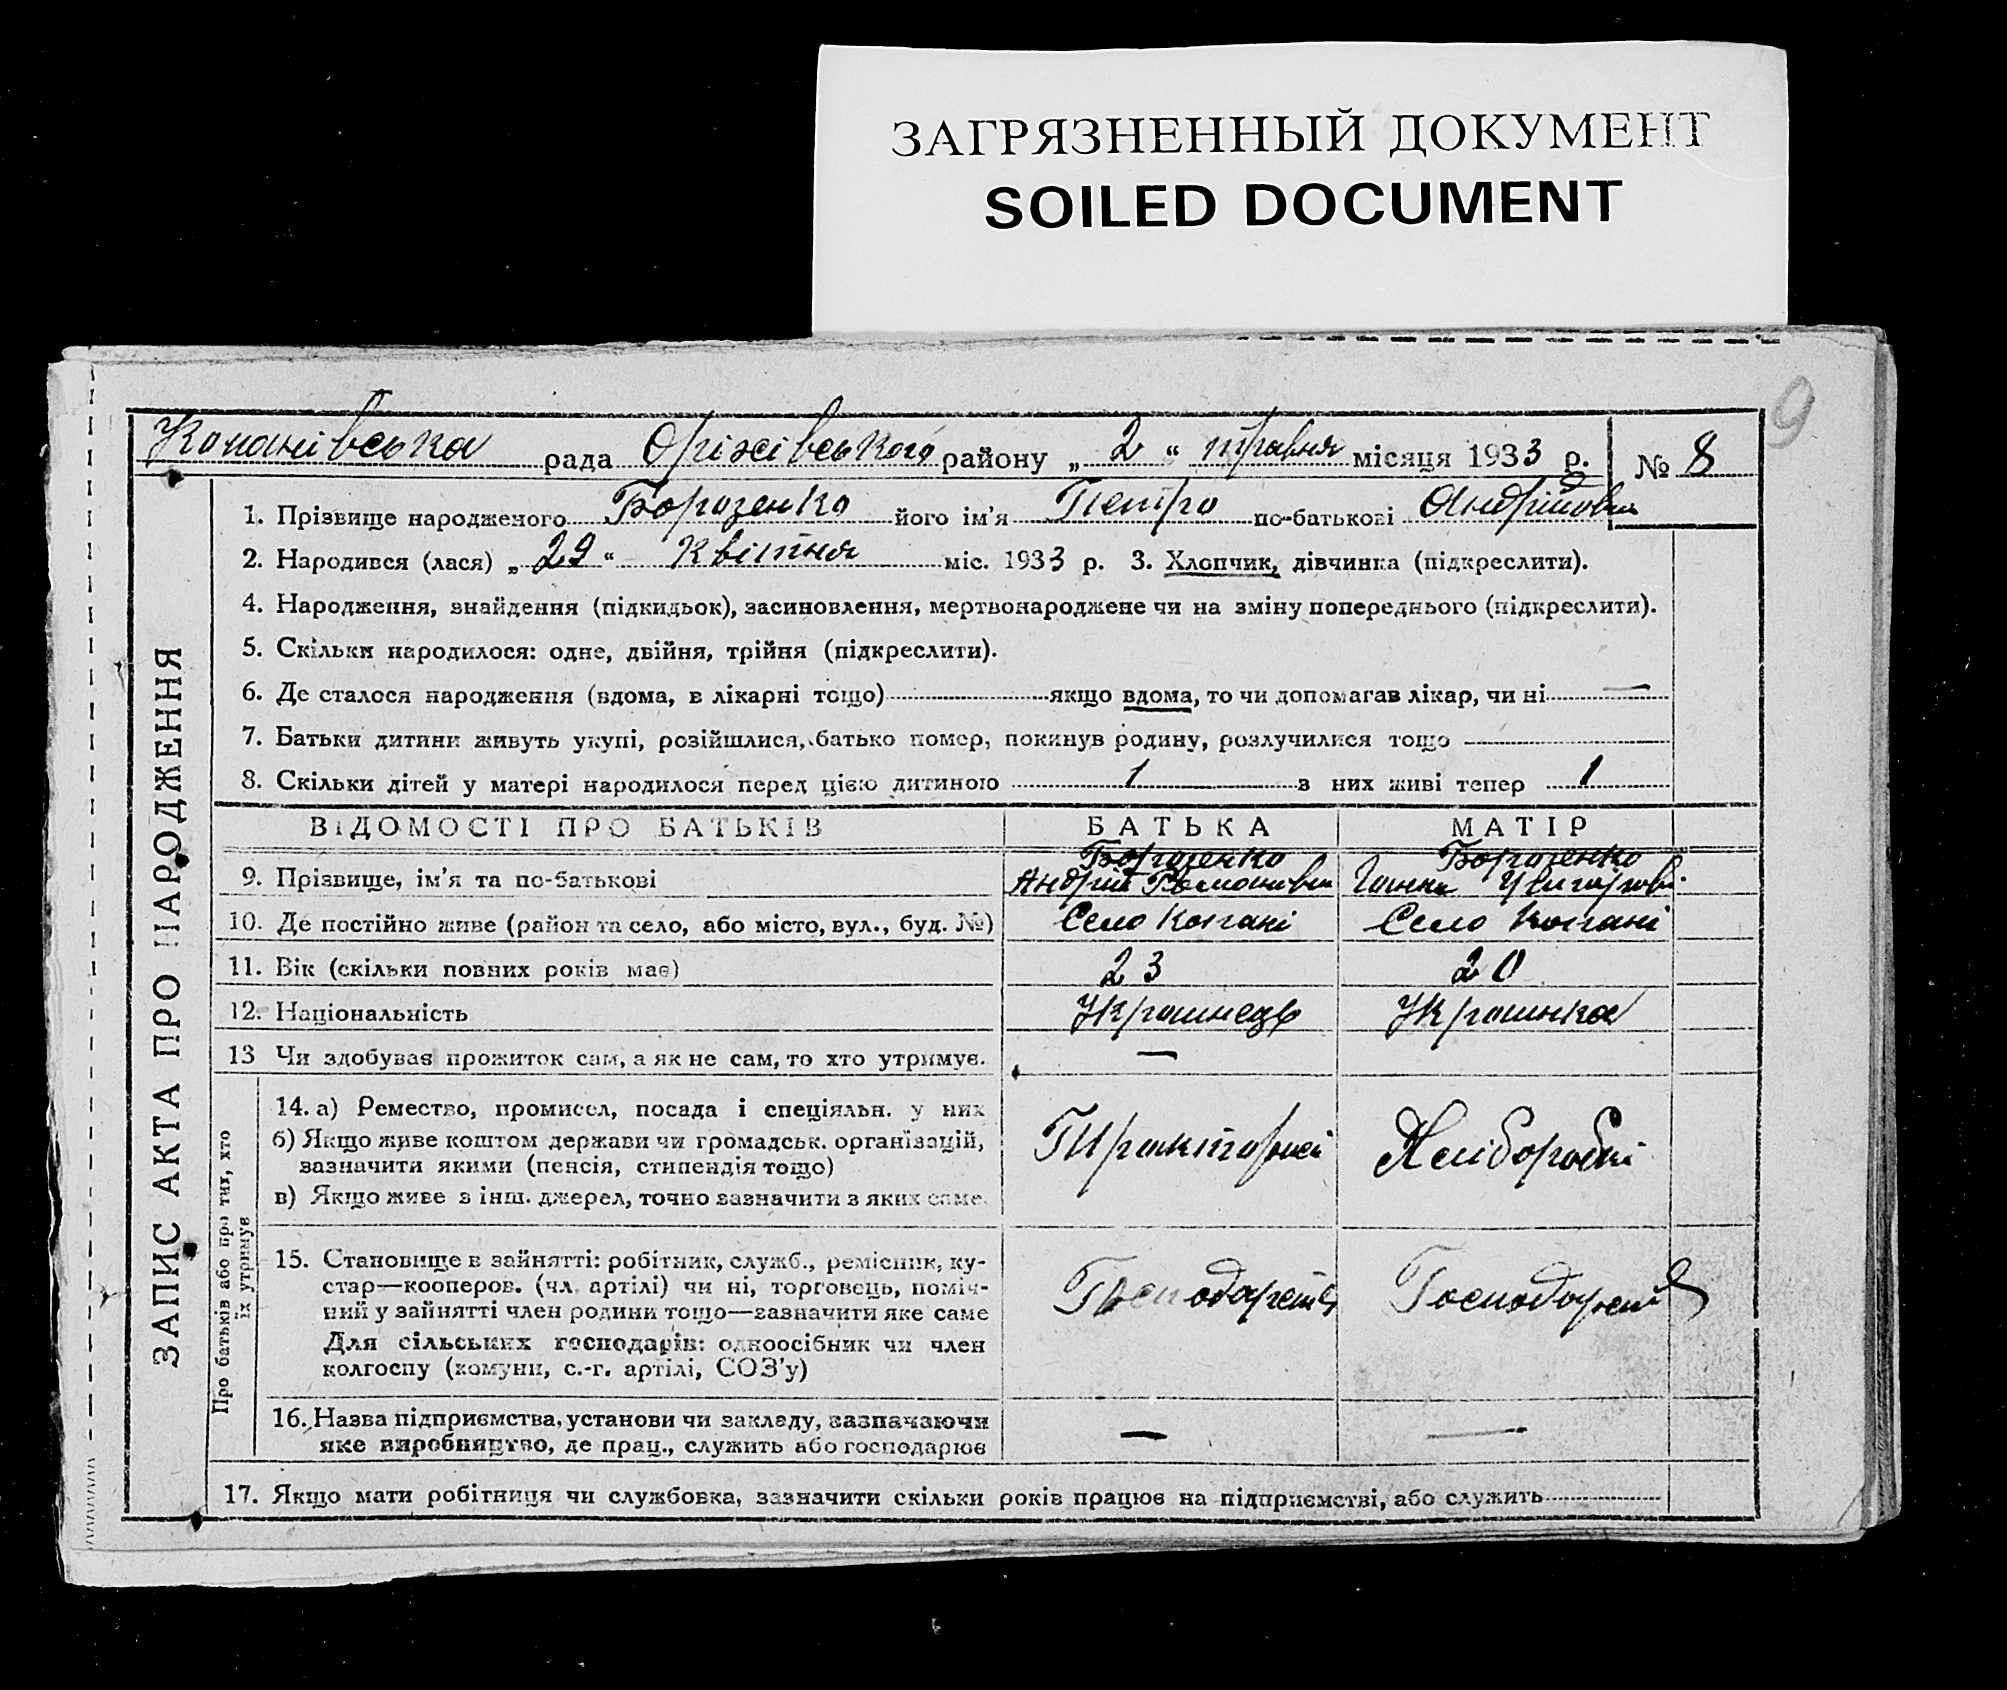 ЗАГРЯЗНЕННЫЙ ДОКУМЕНТ
SOILED DOCUMENT
9
Копанівська рада Оріхівського району „ 2 “ травня місяця 1933 р. № 8
ЗАПИС АКТА ПРО НАРОДЖЕННЯ
1. Прізвище народженого Борозенко його ім'я Петро по-батькові Андрійович
2. Народився (лася) „ 29 “ Квітня міс. 1933 р. 3. Хлопчик, дівчинка (підкреслити).
4. Народження, знайдення (підкидьок), засиновлення, мертвонароджене чи на зміну попереднього (підкреслити).
5. Скільки народилося: одне, двійня, трійня (підкреслити).
6. Де сталося народження (вдома, в лікарні тощо) якщо вдома, то чи допомагав лікар, чи ні —
7. Батьки дитини живуть укупі, розійшлися, батько помер, покинув родину, розлучилися тощо
8. Скільки дітей у матері народилося перед цією дитиною 1 з них живі тепер 1
ВІДОМОСТІ ПРО БАТЬКІВ БАТЬКА МАТІР
Борозенко Борозенко
9. Прізвище, ім'я та по-батькові Андрій Ганна
10. Де постійно живе (район та село, або місто, вул., буд. №) Село Копані Село Копані
11. Вік (скільки повних років має) 23 20
12. Національність Українець Українка
13 Чи здобував прожиток сам, а як не сам, то хто утримує. —
Про батьків або про тих, хто
їх утримує
14. а) Ремество, промисел, посада і спеціяльн. у них
б) Якщо живе коштом держави чи громадськ. організацій,
зазначити якими (пенсія, стипендія тощо)
в) Якщо живе з інш. джерел, точно зазначити з яких саме.
15. Становище в зайнятті: робітник, служб., ремісник, ку-
стар—кооперов. (чл. артілі) чи ні, торговець, поміч-
ний у зайнятті член родини тощо—зазначити яке саме
Для сільських господарів: одноосібник чи член
колгоспу (комуни, с.-г. артілі, СОЗ'у)
16. Назва підприємства, установи чи закладу, зазначаючи — —
яке виробництво, де прац., служить або господарює
17. Якщо мати робітниця чи службовка, зазначити скільки років працює на підприємстві, або служить